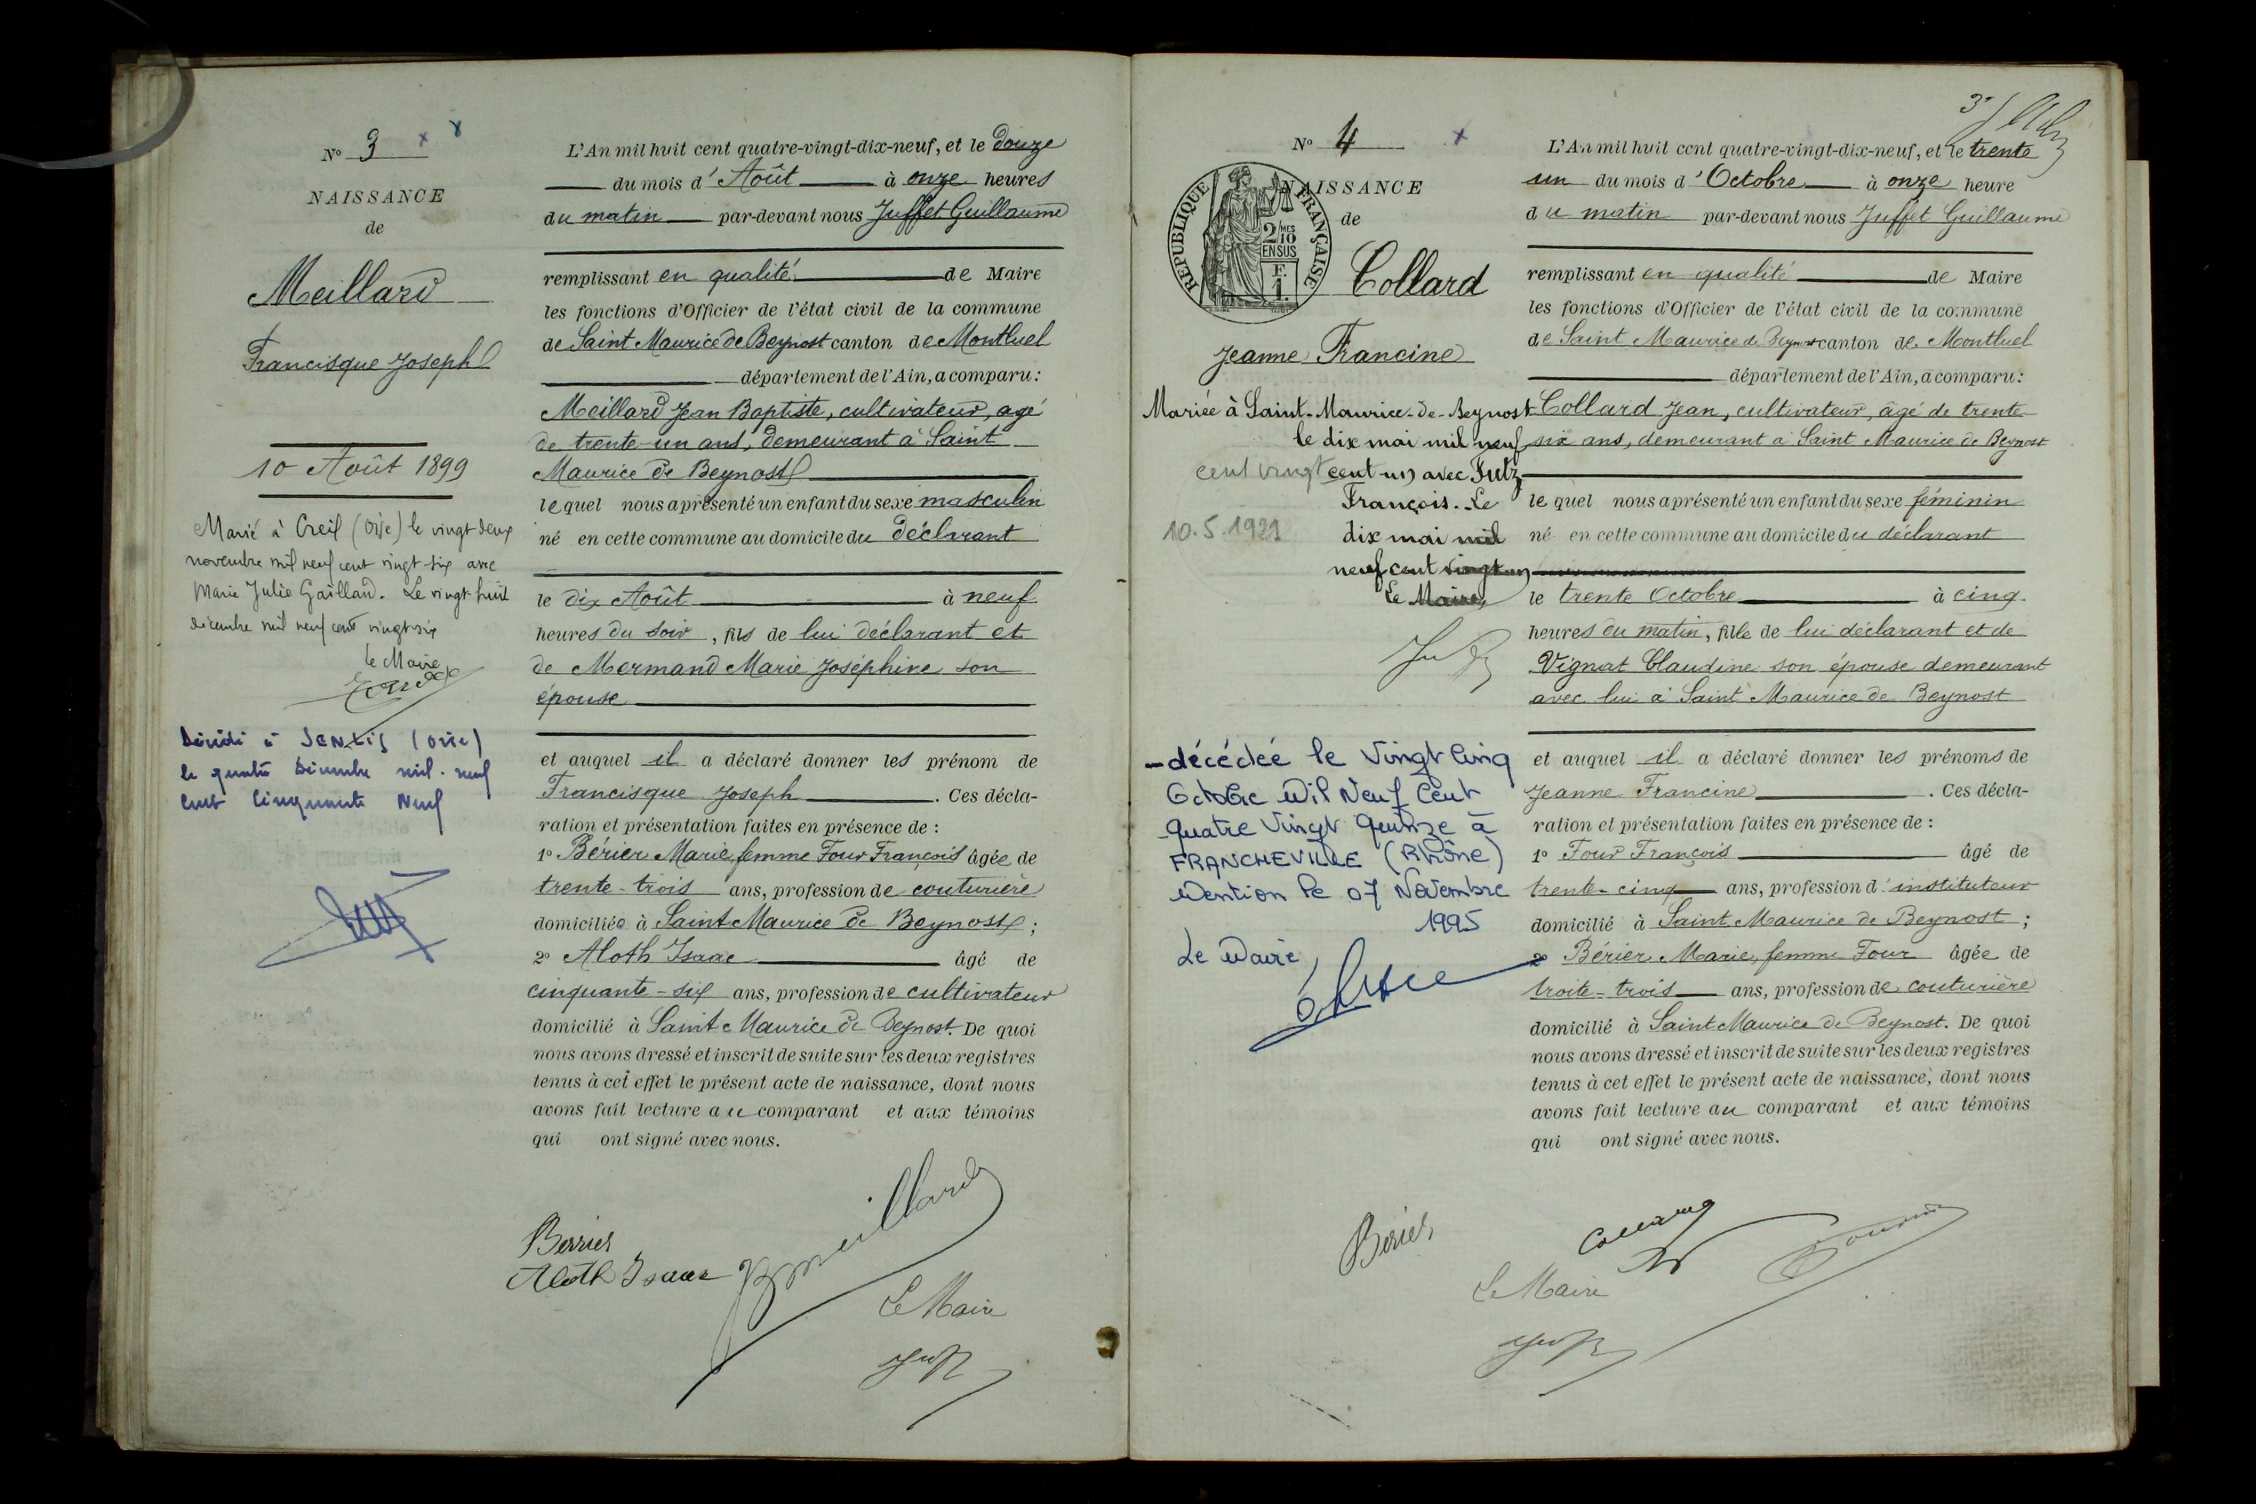 N° 3
NAISSANCE
de
Meillard
Francisque Joseph
10 Août 1899
Marié à Creil (Oise) le vingt deux
novembre mil neuf cent vingt-six avec
Marie Julie Gaillard. Le vingt huit
décembre mil neuf cent vingt six
le Maire
Décédé à SENLIS (Oise)
le quatre Décembre mil-neuf
cent Cinquante Neuf
L'An mil huit cent quatre-vingt-dix-neuf, et le douze
du mois d'Août à onze heures
du matin par-devant nous Juffet Guillaume
remplissant en qualité de Maire
les fonctions d'Officier de l'état civil de la commune
de Saint Maurice de Beynost canton de Montluel
département de l'Ain, a comparu:
Meillard Jean Baptiste, cultivateur, agé
de trente-un ans, demeurant à Saint
Maurice de Beynost
lequel nous a présenté un enfant du sexe masculin
né en cette commune au domicile du déclarant
le dix Août à neuf
heures du soir, fils de lui déclarant et
de Mermand Marie Joséphine son
épouse
et auquel il a déclaré donner les prénom de
Francisque Joseph. Ces décla-
ration et présentation faites en présence de:
1° Bérier Marie femme Four François âgée de
trente-trois ans, profession de couturière
domiciliée à Saint Maurice de Beynost;
2° Aloth Isaac âgé de
cinquante-six ans, profession de cultivateur
domicilié à Saint Maurice de Beynost. De quoi
nous avons dressé et inscrit de suite sur les deux registres
tenus à cet effet le présent acte de naissance, dont nous
avons fait lecture au comparant et aux témoins
qui ont signé avec nous.
Berrier
Aloth Isaac
JB Meillard
Le Maire
N° 4
NAISSANCE
de
REPUBLIQUE FRANÇAISE
2/10 MES
EN SUS
F.
1.
Collard
Jeanne Francine
Mariée à Saint-Maurice-de-Beynost
le dix mai mil neuf
cent vingt cent un avec Futz
François. Le
10.5.1921 dix mai mil
neuf cent vingt un
Le Maire,
-décédée le Vingt Cinq
Octobre Mil Neuf Cent
Quatre Vingt Quinze à
FRANCHEVILLE (Rhône)
Mention le 07 Novembre
1995
Le Maire,
L'An mil huit cent quatre-vingt-dix-neuf, et le trente
un du mois d'Octobre à onze heure
du matin par-devant nous Juffet Guillaume
remplissant en qualité de Maire
les fonctions d'Officier de l'état civil de la commune
de Saint Maurice de Beynost canton de Montluel
département de l'Ain, a comparu:
Collard Jean, cultivateur, âgé de trente
six ans, demeurant à Saint Maurice de Beynost
lequel nous a présenté un enfant du sexe féminin
né en cette commune au domicile du déclarant
le trente Octobre à cinq
heures du matin, fille de lui déclarant et de
Vignat Claudine son épouse demeurant
avec lui à Saint Maurice de Beynost
et auquel il a déclaré donner les prénoms de
Jeanne Francine. Ces décla-
ration et présentation faites en présence de:
1° Four François âgé de
trente-cinq ans, profession d'instituteur
domicilié à Saint Maurice de Beynost;
2° Bérier Marie, femme Four âgée de
troite-trois ans, profession de couturière
domicilié à Saint Maurice de Beynost. De quoi
nous avons dressé et inscrit de suite sur les deux registres
tenus à cet effet le présent acte de naissance, dont nous
avons fait lecture au comparant et aux témoins
qui ont signé avec nous.
Bérier
Collard
Le Maire